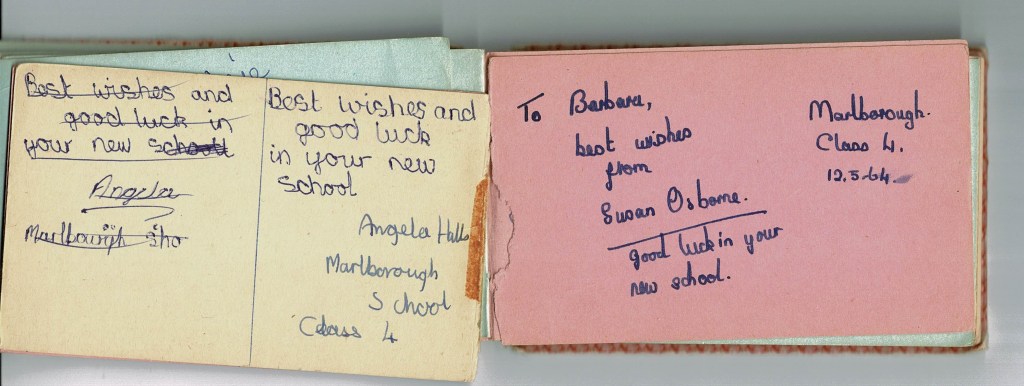 Best wishes and
good luck in
your new school
Angela
Marlborough Sho
Best wishes and
good luck
in your new
school
Angela Halls
Marlborough
School
Class 4
To Barbara,
best wishes
from
Susan Osborne.
good luck in your
new school.
Marlborough.
Class 4.
12.5.64.